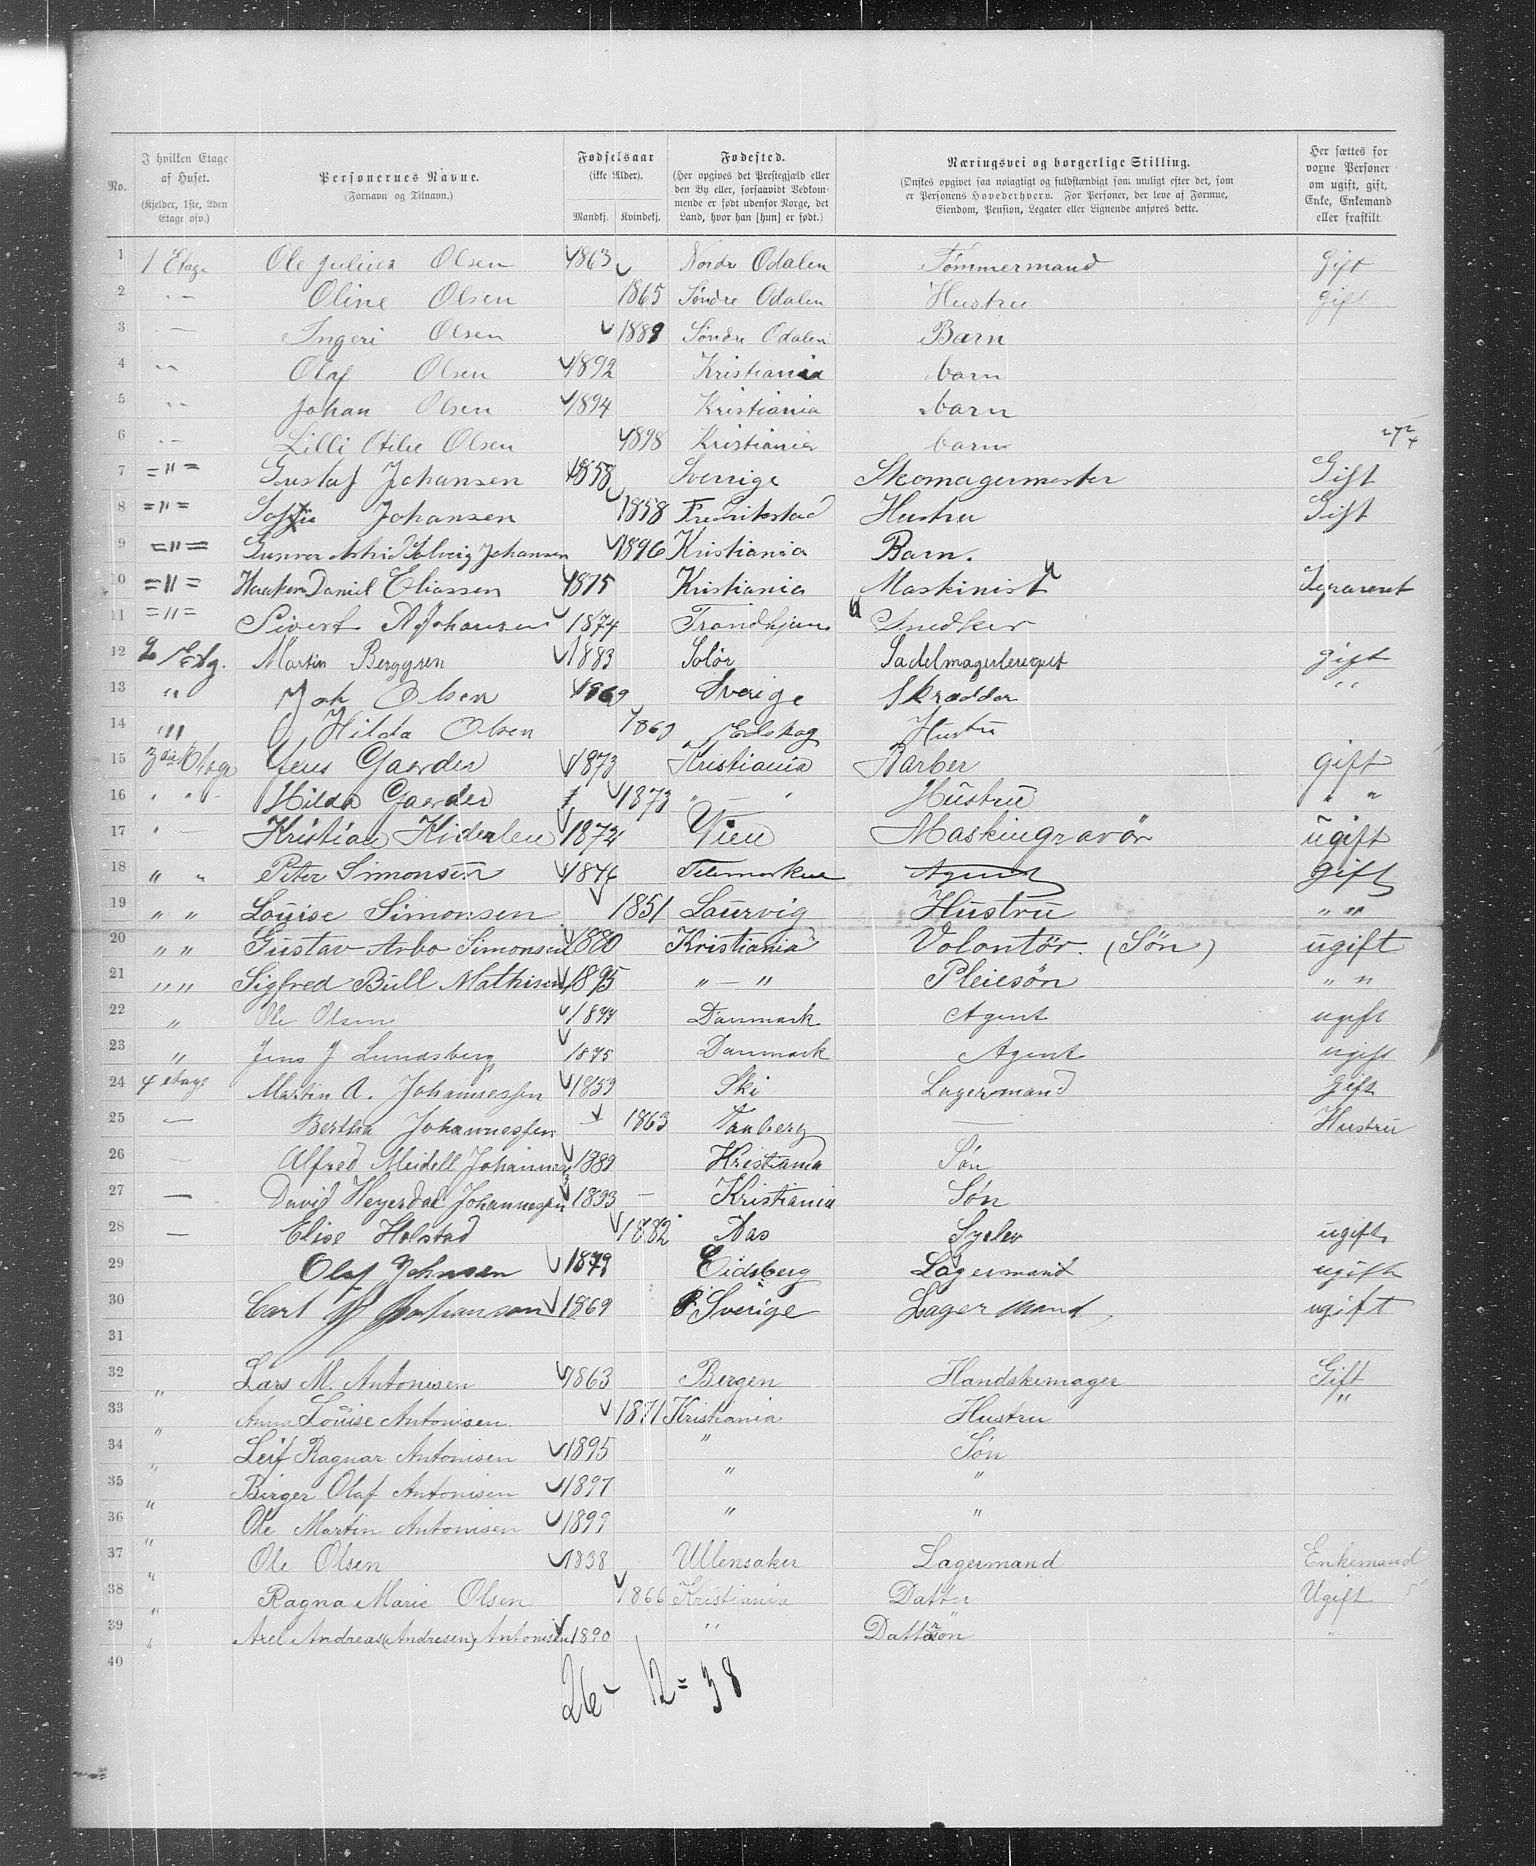 No.
I hvilken Etage af Huset. (Kjelder, 1ste, 2den Etage osv.)
Personernes Navne. (Fornavn og Tilnavn.)
Fødselsaar (ikke Alder). Mandkj. Kvindekj.
Fødested. (Her opgives det Prestegjæld eller den By eller, forsaavidt Vedkommende er født udenfor Norge, det Land, hvor han [hun] er født.)
Næringsvei og borgerlige Stilling. (Ønskes opgivet saa nøiagtigt og fuldstændigt som muligt efter det, som er Personens Hovederhverv. For Personer, der leve af Formue, Eiendom, Pension, Legater eller Lignende anføres dette.
Her sættes for voxne Personer om ugift, gift, Enke, Enkemand eller fraskilt
1 1 Etage Ole Julius Olsen 1863 Nordre Odalen Tømmermand gift
2 -"- Oline Olsen 1865 Søndre Odalen Hustru gift
3 — Ingeri Olsen 1889 Søndre Odalen Barn
4 -"- Olaf Olsen 1892 Kristiania barn
5 -"- Johan Olsen 1894 Kristiania barn
6 -"- Lilli Otilie Olsen 1898 Kristiania barn
7 ="= Gustaf Johansen 1858 Sverrige Skomagermester Gift
8 ="= Soffie Johansen 1858 Fredrikstad Hustru Gift
9 ="= Gunvor Astrid Solveig Johansen 1896 Kristiania Barn.
10 ="= Haakon Daniel Eliassen 1875 Kristiania Maskinist Separeret
11 ="= Sivert A Johansen 1874 Trondhjem Snedker
12 2 Etg. Martin Berggren 1883 Solør Sadelmagerlere gift
13 " Joh Olsen 1869 Sverige Skrædder "
14 " Hilda Olsen 1869 Edskog Hustru
15 3die Etage Jens Gaarder 1873 Kristiania Barber gift
16 " " Hilda Gaarder 1873 " — " Hustru " "
17 " — Kristian Kiderlen 1874 Wien Maskingravör ugift
18 " " Peter Simonsen 1846 Telemarken Agent gift
19 " " Louise Simonsen 1851 Laurvig Hustru " "
20 " " Gustav Arbo Simonsen 1880 Kristiania Volontør. (Søn) ugift
21 " " Sigfred Bull Mathisen 1895 " — " Pleiesøn " "
22 " Ole Olsen 1844 Danmark Agent ugift
23 " Jens J Lundsberg 1875 Danmark Agent ugift
24 4 etage Martin A. Johannessen 1859 Ski Lagermand gift
25 — Bertha Johannessen — 1863 Vanberg — Hustru
26 — Alfred Meidell Johannes 1889 Kristiania Søn
27 — David Heyerdal Johannessen 1893 — Kristiania Søn
28 — Elise Holstad 1882 Aas Syelev ugift
29 Olaf Johnsen 1879 Eidsberg Lagermand ugift
30 Carl J Johanson 1869 Sverige Lagermand ugift
31
32 " Lars M. Antonisen 1863 Bergen Handskemager Gift
33 " Anna Louise Antonisen. 1871 Kristiania Hustru "
34 " Leif Ragnar Antonisen 1895 " Søn
35 " Birger Olaf Antonisen 1897 " "
36 " Ole Martin Antonisen 1899 " "
37 " Ole Olsen 1838 Ullensaker Lagermand Enkemand
38 " Ragna Marie Olsen 1866 Kristiania Datter Ugift
39 " Axel Andreas (Andresen) Antonisen 1890 " Dattersøn "
40
26 - 12 = 38